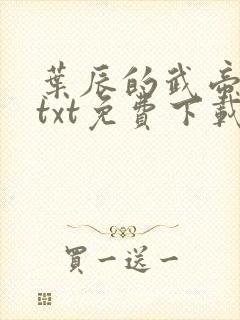 葉辰的武帝
txt免費下載
買一送一